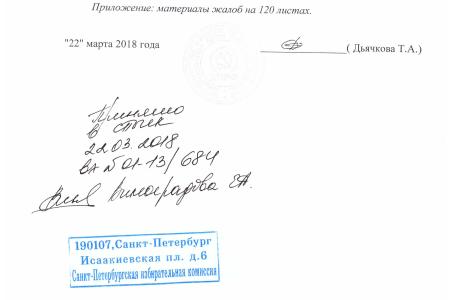 Приложение: материалы жалоб на 120 листах.
"22" марта 2018 года ( Дьячкова Т.А.)
Принято
в
22.03.2018
вх № 01-13/684
Виноградова
190107,Санкт-Петербург
Исаакиевская пл. д.6
Санкт-Петербургская избирательная комиссия